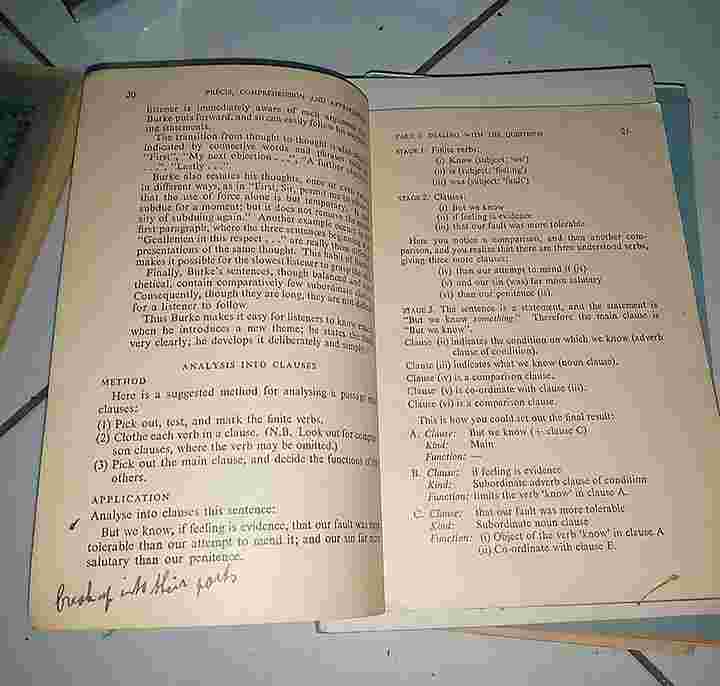 20 PRÉCIS, COMPREHENSION AND
listener is immediately aware of each argument
Burke puts forward, and so can easily follow his
ing statements.
The transition from thought to thought is also
indicated by connective words and phrases
"First", "My next objection . . .", "A further
. . .", "Lastly . . ."
Burke also restates his thoughts, once or even
in different ways, as in "First, Sir, permit me to
that the use of force alone is but temporary. It
subdue for a moment; but it does not remove the
sity of subduing again." Another example occurs
first paragraph, where the three sentences beginning
"Gentlemen in this respect . . ." are really three
presentations of the same thought. This habit of
makes it possible for the slowest listener to grasp the
Finally, Burke's sentences, though balanced and
thetical, contain comparatively few subordinate
Consequently, though they are long, they are not
for a listener to follow.
Thus Burke makes it easy for listeners to know
when he introduces a new theme; he states the
very clearly; he develops it deliberately and
ANALYSIS INTO CLAUSES
METHOD
Here is a suggested method for analysing a passage
clauses:
(1) Pick out, test, and mark the finite verbs.
(2) Clothe each verb in a clause. (N.B. Look out for
son clauses, where the verb may be omitted.)
(3) Pick out the main clause, and decide the functions of
others.
APPLICATION
Analyse into clauses this sentence:
But we know, if feeling is evidence, that our fault was
tolerable than our attempt to mend it; and our sin far
salutary than our penitence.
break up into their parts
PART I: DEALING WITH THE QUESTIONS 21
STAGE 1. Finite verbs:
(i) Know (subject: 'we')
(ii) is (subject: 'feeling')
(iii) was (subject: 'fault')
STAGE 2. Clauses:
(i) But we know
(ii) if feeling is evidence
(iii) that our fault was more tolerable
Here you notice a comparison, and then another com-
parison, and you realize that there are three understood verbs,
giving three more clauses:
(iv) than our attempt to mend it (is)
(v) and our sin (was) far more salutary
(vi) than our penitence (is).
STAGE 3. The sentence is a statement, and the statement is
"But we know something." Therefore the main clause is
"But we know".
Clause (ii) indicates the condition on which we know (adverb
clause of condition).
Clause (iii) indicates what we know (noun clause).
Clause (iv) is a comparison clause.
Clause (v) is co-ordinate with clause (iii).
Clause (vi) is a comparison clause.
This is how you could set out the final result:
A. Clause: But we know (+ clause C)
Kind: Main
Function: —
B. Clause: if feeling is evidence
Kind: Subordinate adverb clause of condition
Function: limits the verb 'know' in clause A.
C. Clause: that our fault was more tolerable
Kind: Subordinate noun clause
Function: (i) Object of the verb 'know' in clause A
(ii) Co-ordinate with clause E.